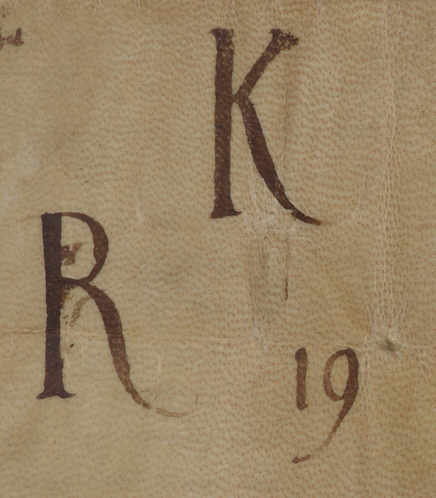 K
R
19